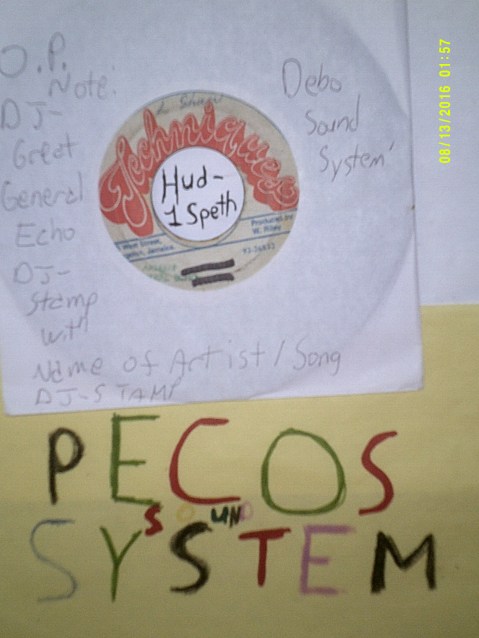 08/13/2016 01:57
O.P.
Note:
DJ-
Great
General
Echo
DJ-
Stamp
with
Name of Artist / Song
DJ-STAMP
Debo
Sound
System'
Techniques
Hud-
1 Speth
West Street,
Jamaica
Produced by
W. Riley
PECOS
SOUND
SYSTEM